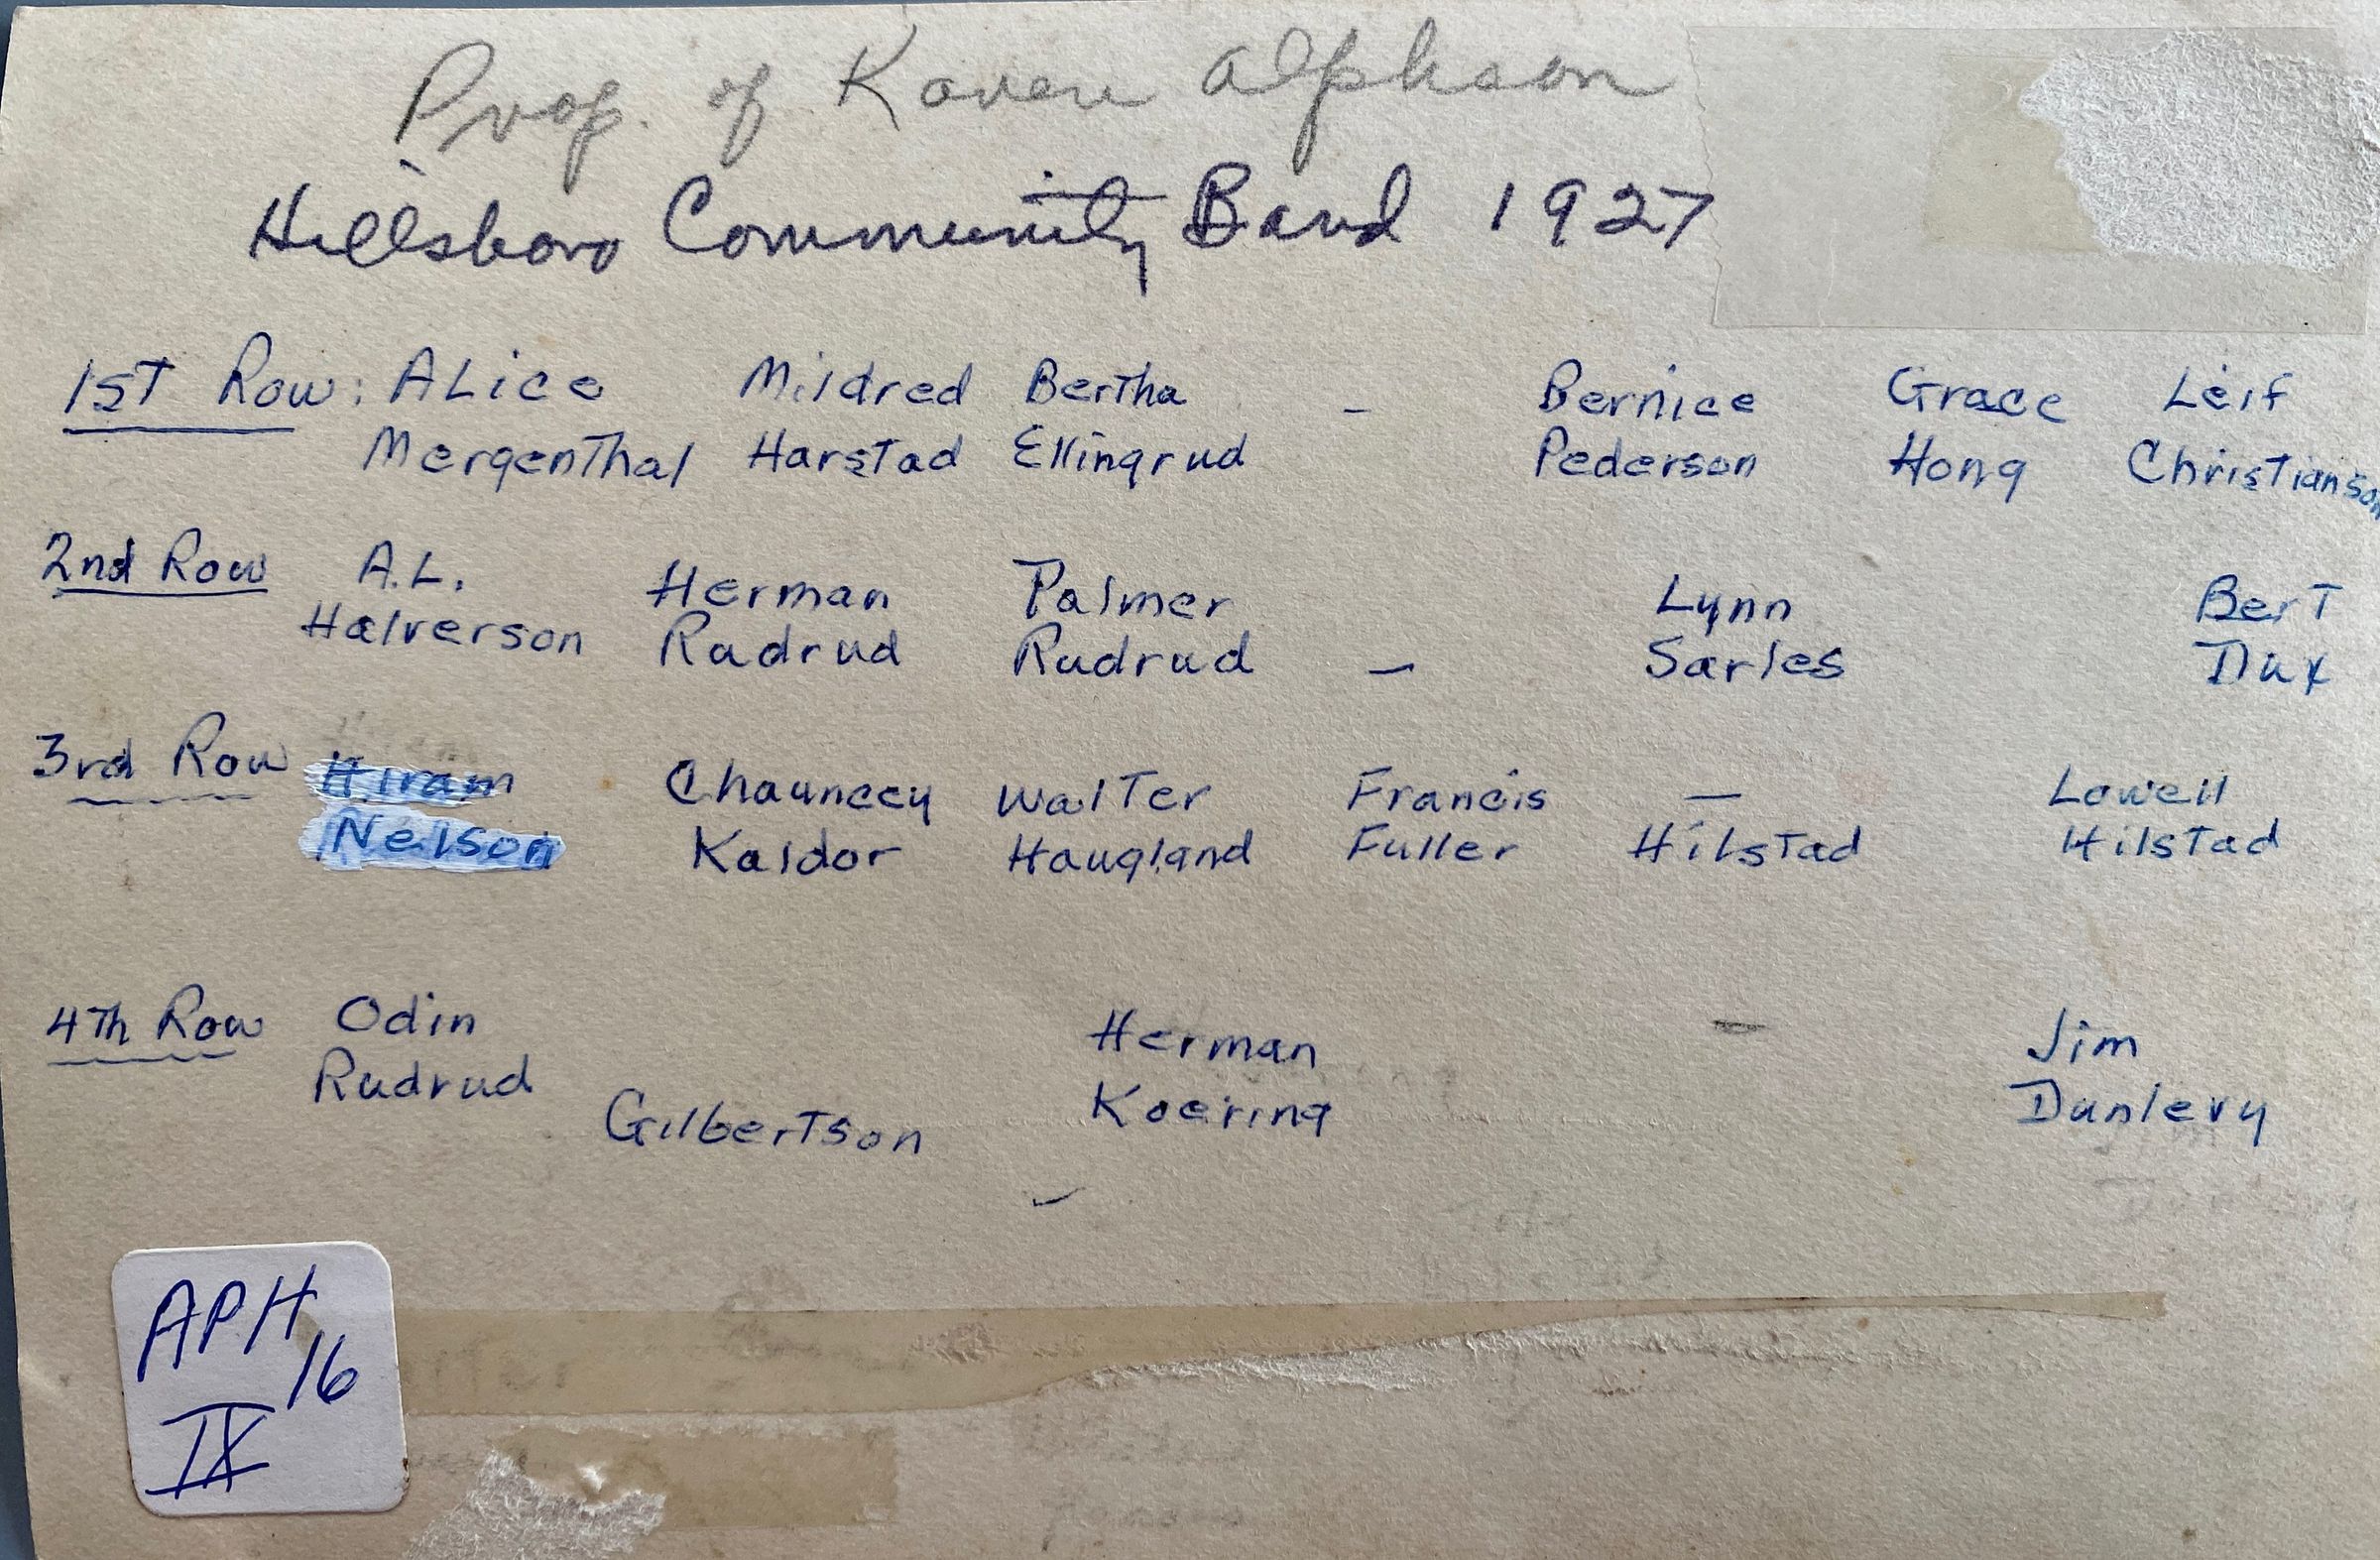 Prop. of Karen Alphson
Hillsboro Community Band 1927
1ST Row: ALice Mildred Bertha - Bernice Grace Leif
Mergenthal Harstad Ellingrud Pederson Hong Christianson
2nd Row A.L. Herman Palmer Lynn Bert
Halverson Radrud Rudrud - Sarles Dux
3rd Row Hiram Chauncey Walter Francis — Lowell
Nelson Kaldor Haugland Fuller Hilstad Hilstad
4Th Row Odin Herman - Jim
Rudrud Gilbertson Koering Dunlevy
-
APH
16
IX